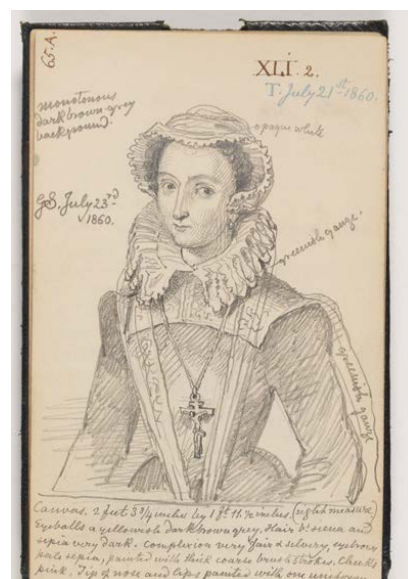 65.A.
XLI. 2.
T. July 21st 1860.
monotonous
dark brown grey
background.
opaque white
GS. July 23rd
1860.
greenish gauze.
greenish gauze
Canvas. 2 feet 3 3/4 inches by 1 ft 11 inches. (sight measure)
Eyeballs a yellowish dark brown grey. Hair bt siena and
sepia very dark. complexion very fair & silvery, eyebrows
pale sepia, painted with thick coarse brush strokes. Cheeks
pink. Tip of nose and lips painted with one